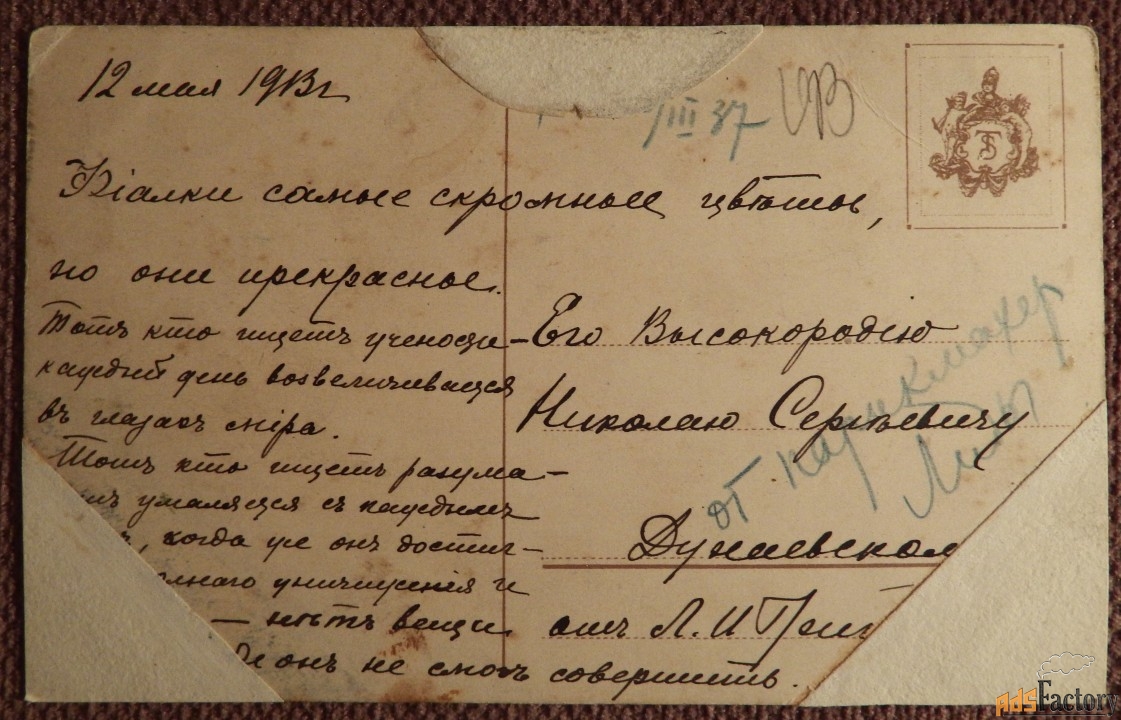 12 мая 1913 г
III 37
Фіалки самые скромные цвѣты,
но они прекрасные.
Тотъ кто ищетъ ученость —
каждый день возвеличивается
въ глазахъ міра.
Тотъ кто ищетъ разума —
умаляется съ каждымъ
, когда уже онъ достиг-
олнаго уничиженія и
— нѣтъ вещи
онъ не смогъ совершить.
TS
Его Высокородію
Николаю Сергѣевичу
Дунаевском
отъ Л. И
от
AdsFactory